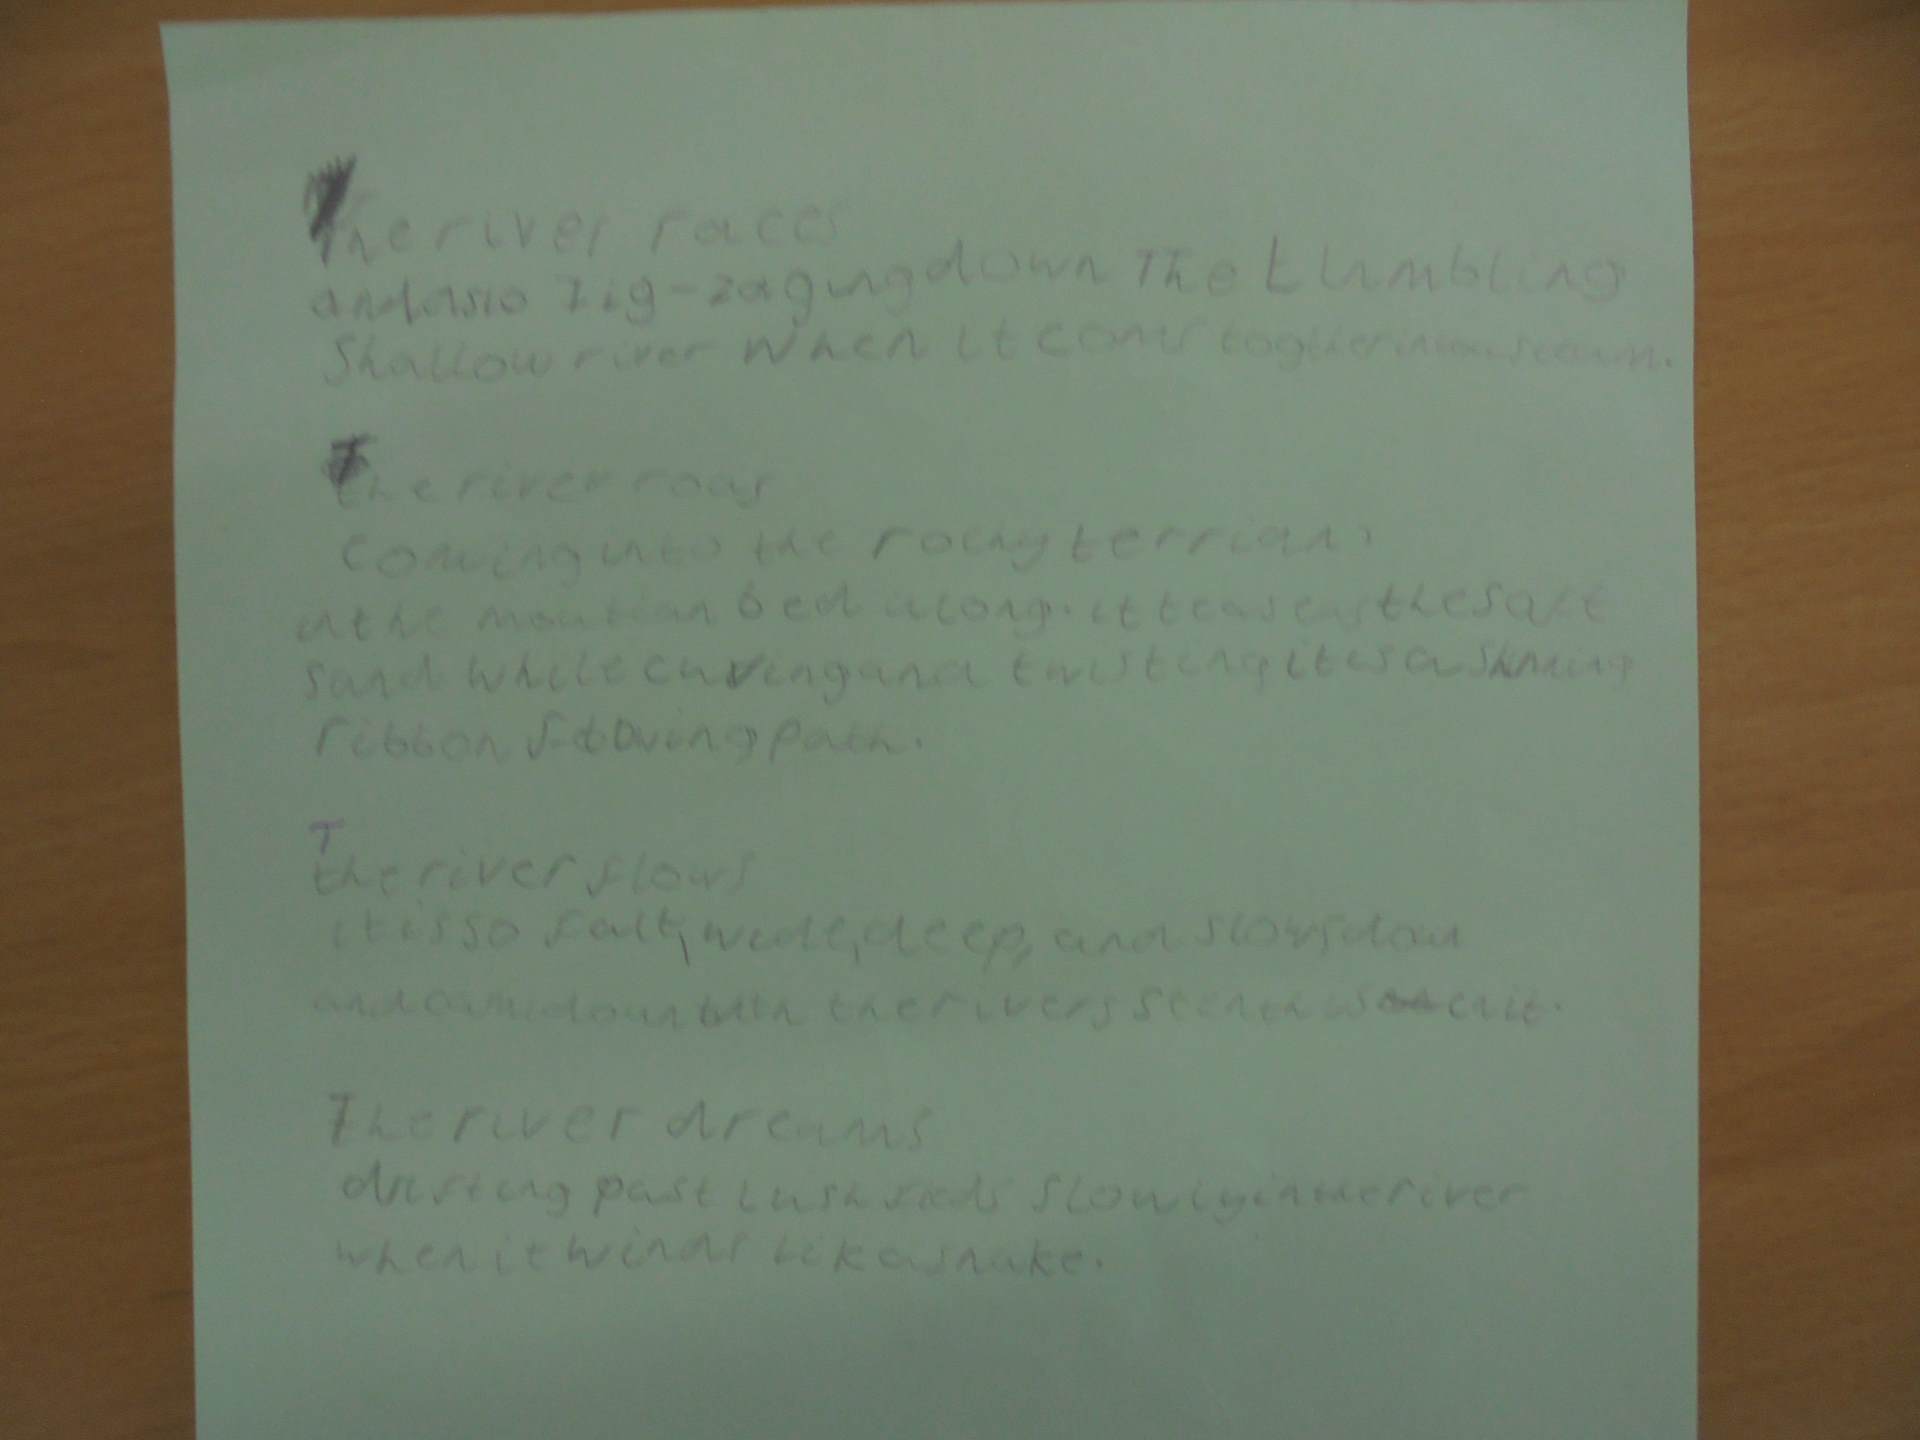 The river races
zig-zaging down The tumbling
Shallow river when it coms
The river roars
Coming into the rocky terrian,
in the mountian bed along. it the salt
sand while curving and twisting it is a shining
ribbon flowing path.
The river flows
it is so salt, wide, deep, and slows down
and the rivers
The river dreams
drifting past lush slowly in the river
when it winds like a snake.